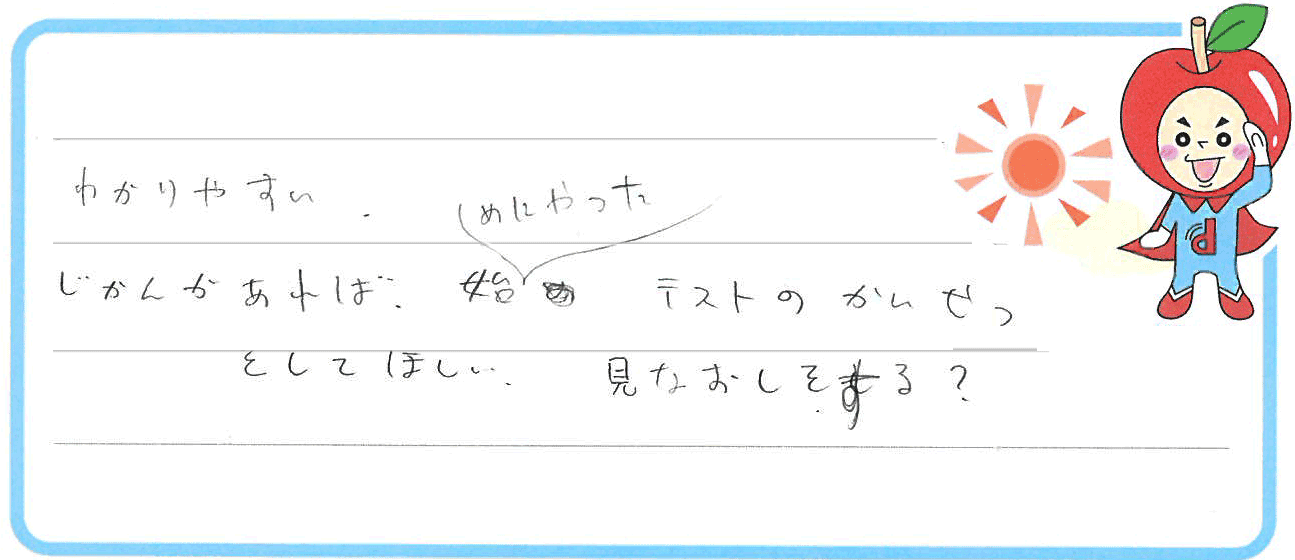 わかりやすい.
じかんがあれば、始めにやった テストのかいせつ
をしてほしい、 見なおしをする?